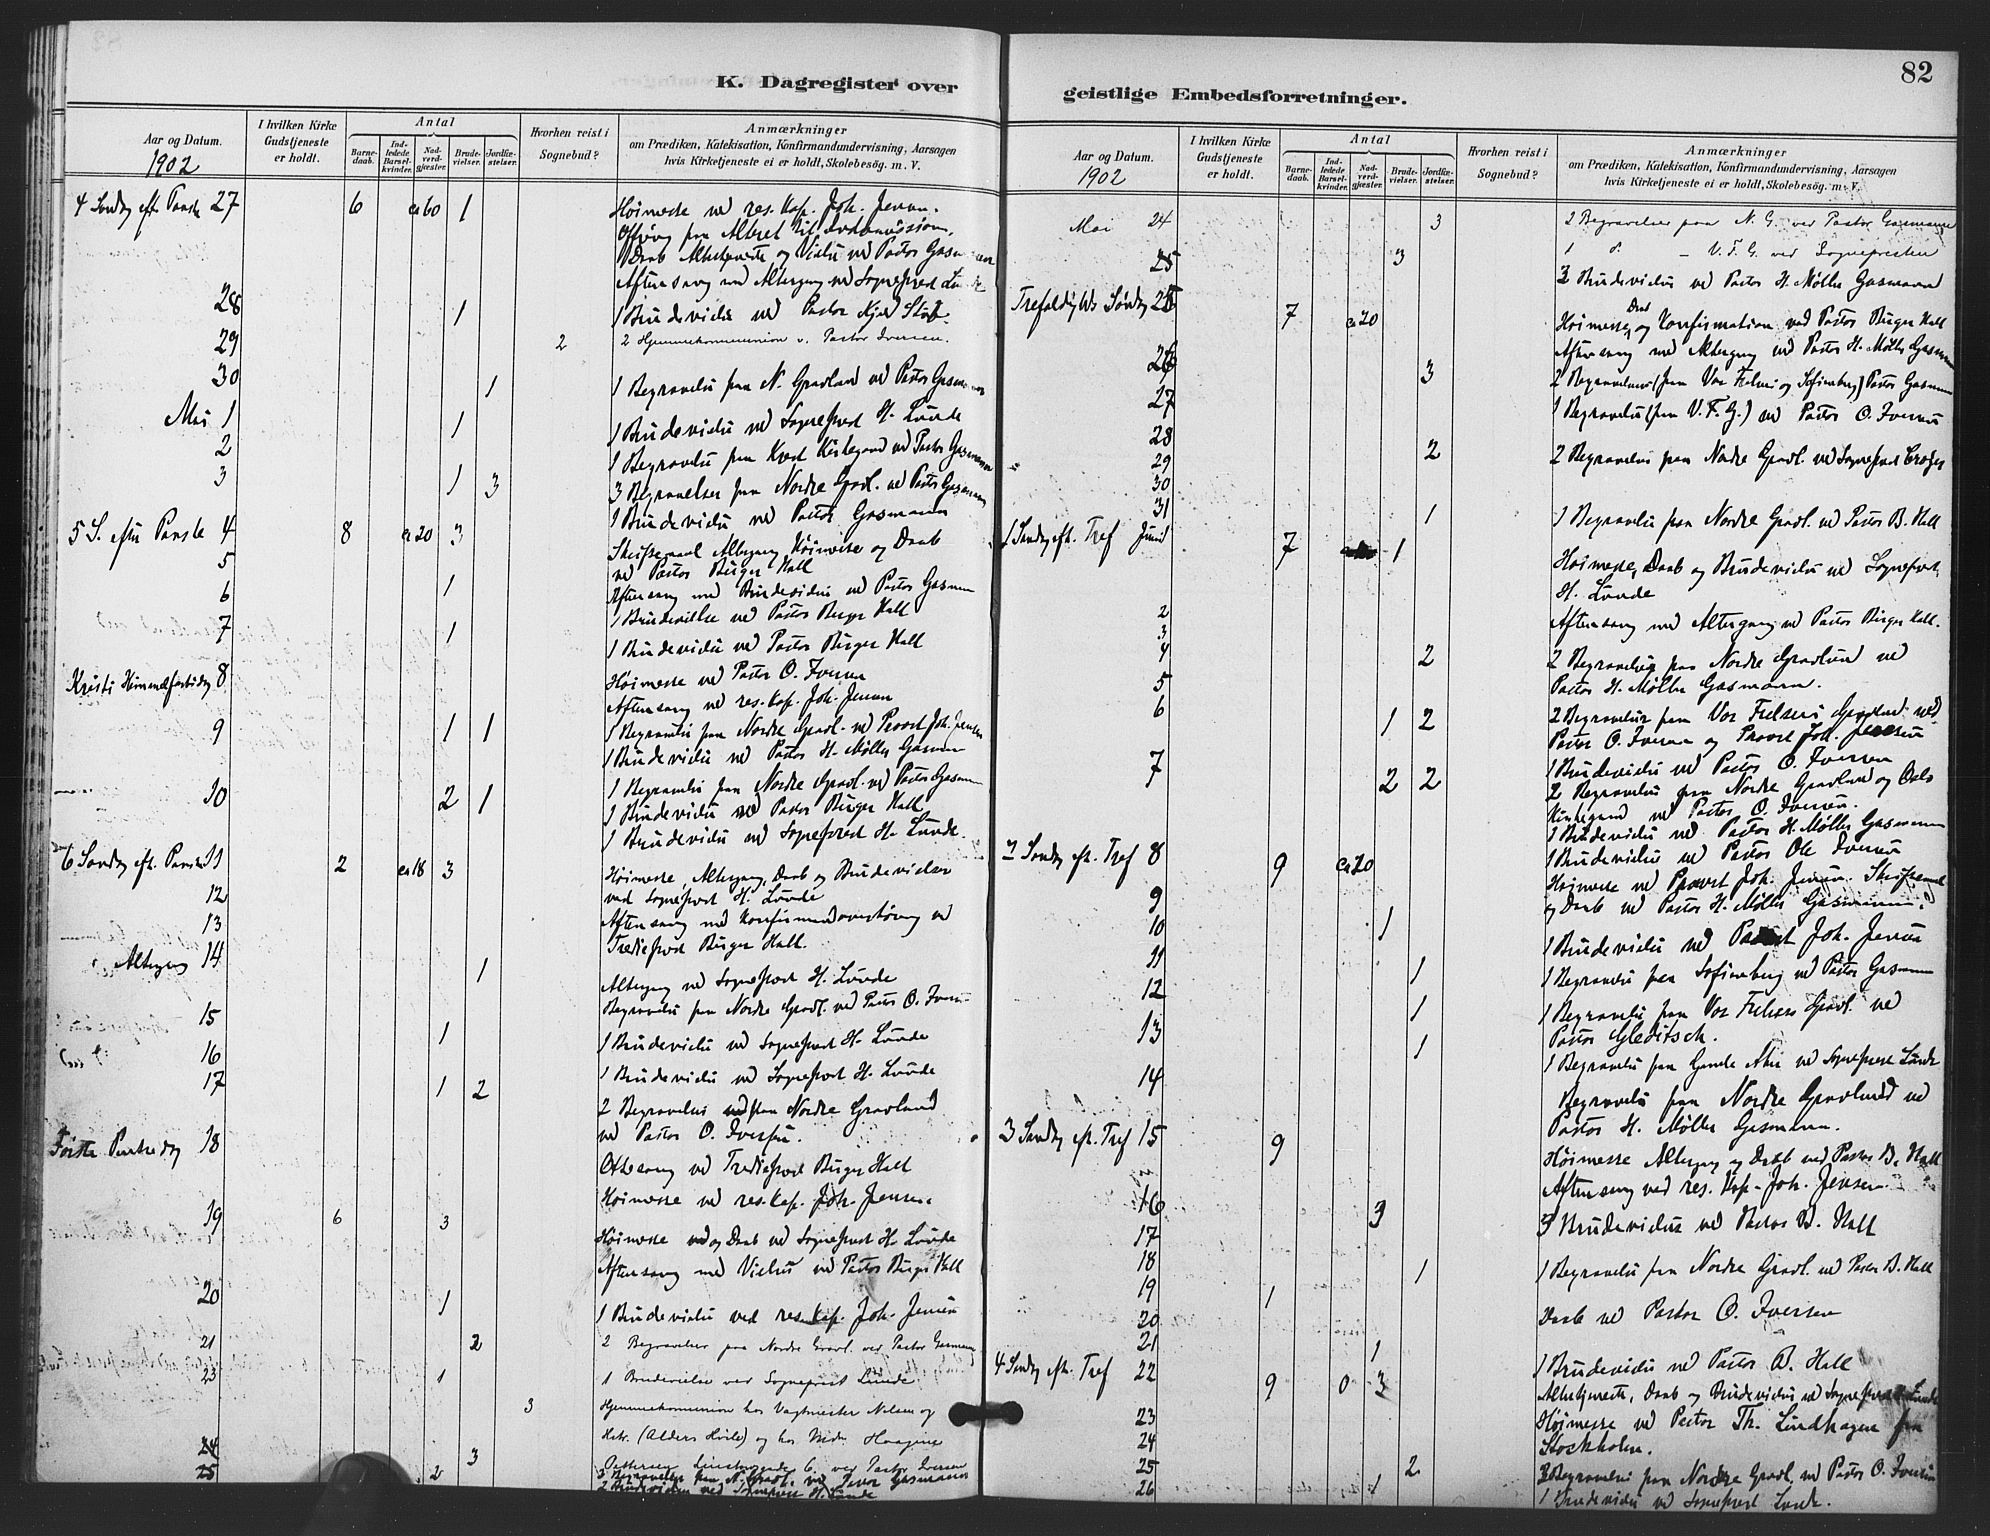 82
K. Dagregister over
geistlige Embedsforretninger.
Aar og Datum.
1902
I hvilken Kirke Gudstjeneste er holdt.
Antal
Barnedaab.
Indledede Barselkvinder.
Nadverdgjæster.
Brudevielser.
Jordfæstelser.
Hvorhen reist i Sognebud?
Anmærkninger
om Prædiken, Katekisation, Konfirmandundervisning, Aarsagen
hvis Kirketjeneste ei er holdt, Skolebesøg. m. V.
4 Søndag eft. Paaske 27 6 ca 60 1 Høimesse ved res. Kap. Joh. Jensen.
Offring paa Alteret til
Daab Altertjeneste og Vielse ved Pastor Gasmann
Aftensang med Altergang ved Sogneprest Lunde
28 1 1 Brudevielse ved Pastor
29 2 2 Hjemmekommunion v. Pastor Iversen.
30 1 1 Begravelse paa N. Gravlund ved Pastor Gasmann
Mai 1 1 1 Brudevielse ved Sogneprest H. Lunde
2 1 Begravelse paa Kirkegaard ved Pastor Gasmann
3 1 3 3 Begravelser paa Nordre Gravl. ved Pastor Gasmann
1 Brudevielse ved Pastor Gasmann
5 S. efter Paaske 4 8 ca 20 3 Skriftemaal Altergang Høimesse og Daab
ved Pastor Birger Hall
5 Aftensang med Brudevielse ved Pastor Gasmann
6 1 1 Brudevielse ved Pastor Birger Hall
7 1 1 Brudevielse ved Pastor Birger Hall
Kristi Himmelfartsdag 8 Høimesse ved Pastor O. Iversen
Aftensang ved res. Kap. Joh. Jensen
9 1 1 1 Begravelse paa Nordre Gravl. ved Provst Joh. Jensen
1 Brudevielse ved Pastor H. Møller Gasmann
10 2 1 1 Begravelse paa Nordre Gravl. ved Pastor Gasmann
1 Brudevielse ved Pastor Birger Hall
1 Brudevielse ved Sogneprest H. Lunde.
6 Søndag eft. Paaske 11 2 ca 18 3 Høimesse, Altergang, Daab og Brudevielser
ved Sogneprest H. Lunde
12 Aftensang med Konfirmandoverhøring ved
13 Tredieprest Birger Hall.
Altergang 14 1 Altergang ved Sogneprest H. Lunde
Begravelse paa Nordre Gravl. ved Pastor O. Iversen
15 1 1 Brudevielse ved Sogneprest H. Lunde
16 1 Brudevielse ved Sogneprest H. Lunde
17 1 2 2 Begravelser paa Nordre Gravlund
ved Pastor O. Iversen.
Første Pintsedag 18 Ottesang ved Tredieprest Birger Hall
Høimesse ved res. Kap. Joh. Jensen.
19 6 3 Høimesse og Daab ved Sogneprest H. Lunde
Aftensang med Vielser ved Pastor Birger Hall
20 1 1 Brudevielse ved res. Kap. Joh. Jensen
21 2 2 Begravelser paa Nordre Gravl. ved Pastor Gasmann
23 1 1 Brudevielse ved Sogneprest Lunde
3 Hjemmekommunion hos Vagtmester Nilsen og
(Alders Hvile) og hos
24 3 ved Pastor Iversen
25 2 3 Begravelser paa N. Gravl. ved Pastor Gasmann
2 Brudevielser ved Sogneprest H. Lunde
Aar og Datum.
1902
I hvilken Kirke Gudstjeneste er holdt.
Antal
Barnedaab.
Indledede Barselkvinder.
Nadverdgjæster.
Brudevielser.
Jordfæstelser.
Hvorhen reist i Sognebud?
Anmærkninger
om Prædiken, Katekisation, Konfirmandundervisning, Aarsagen
hvis Kirketjeneste ei er holdt, Skolebesøg. m. V.
Mai 24 3 2 Begravelser paa N. G. ved Pastor Gasmann
1 d. – V. F. G. ved Sognepresten
3 3 Brudevielser ved Pastor H. Møller Gasmann
Trefoldigheds Søndag 25 7 ca 20 Høimesse, Daab og Konfirmation ved Pastor Birger Hall
Aftensang med Altergang ved Pastor H. Møller Gasmann
26 3 2 Begravelser (paa Vor Frelser og Sofienberg) Pastor Gasmann
27 1 Begravelse (paa V. F. G.) ved Pastor O. Iversen
28 2 2 Begravelser paa Nordre Gravl. ved Sogneprest
29
30
31 1 1 Begravelse paa Nordre Gravl. ved Pastor B. Hall
1 Søndag eft. Tref Juni 7 1 Høimesse, Daab og Brudevielse ved Sogneprest
H. Lunde
2 Aftensang med Altergang ved Pastor Birger Hall.
3
4 2 2 Begravelser paa Nordre Gravlund ved
5 Pastor H. Møller Gasmann.
6 1 2 2 Begravelser paa Vor Frelsers Gravlund ved
Pastor O. Iversen og Provst Joh. Jensen
1 Brudevielse ved Pastor O. Iversen
7 2 2 2 Begravelser paa Nordre Gravlund og Oslo
Kirkegaard ved Pastor O. Iversen.
1 Brudevielse ved Pastor H. Møller Gasmann
1 Brudevielse ved Pastor Ole Iversen
2 Søndag eft. Tref 8 9 ca 20 Høimesse ved Provst Joh. Jensen Skriftemaal
og Daab ved Pastor H. Møller Gasmann.
9
10 1 1 Brudevielse ved Joh. Jensen
11 1 1 Begravelse paa Sofienberg ved Pastor Gasmann
12 1 1 Begravelse paa Vor Frelsers Gravl. ved
Pastor Gleditsch.
13 1 1 Begravelse paa Gamle Aker ved Sogneprest Lunde
14 Begravelse paa Nordre Gravlund ved
Pastor H. Møller Gasmann.
3 Søndag eft. Tref 15 9 Høimesse Altergang og Daab ved Pastor B. Hall
Aftensang ved res. Kap. Joh. Jensen
16 3 3 Brudevielser ved Pastor B. Hall
17
18 1 1 Begravelse paa Nordre Gravl. ved Pastor B. Hall
19 1 Daab ved Pastor O. Iversen
20
21 1 1 Brudevielse ved Pastor B. Hall
4 Søndag eft. Tref 22 9 0 3 Altertjeneste, Daab og Brudevielser ved Sogneprest Lunde
Høimesse ved Pastor Th. Lindhagen fra
Stockholm.
23
24
25 2 2 Begravelser paa Nordre Gravl. ved Pastor O. Iversen
26 1 1 Brudevielse ved Sogneprest Lunde.